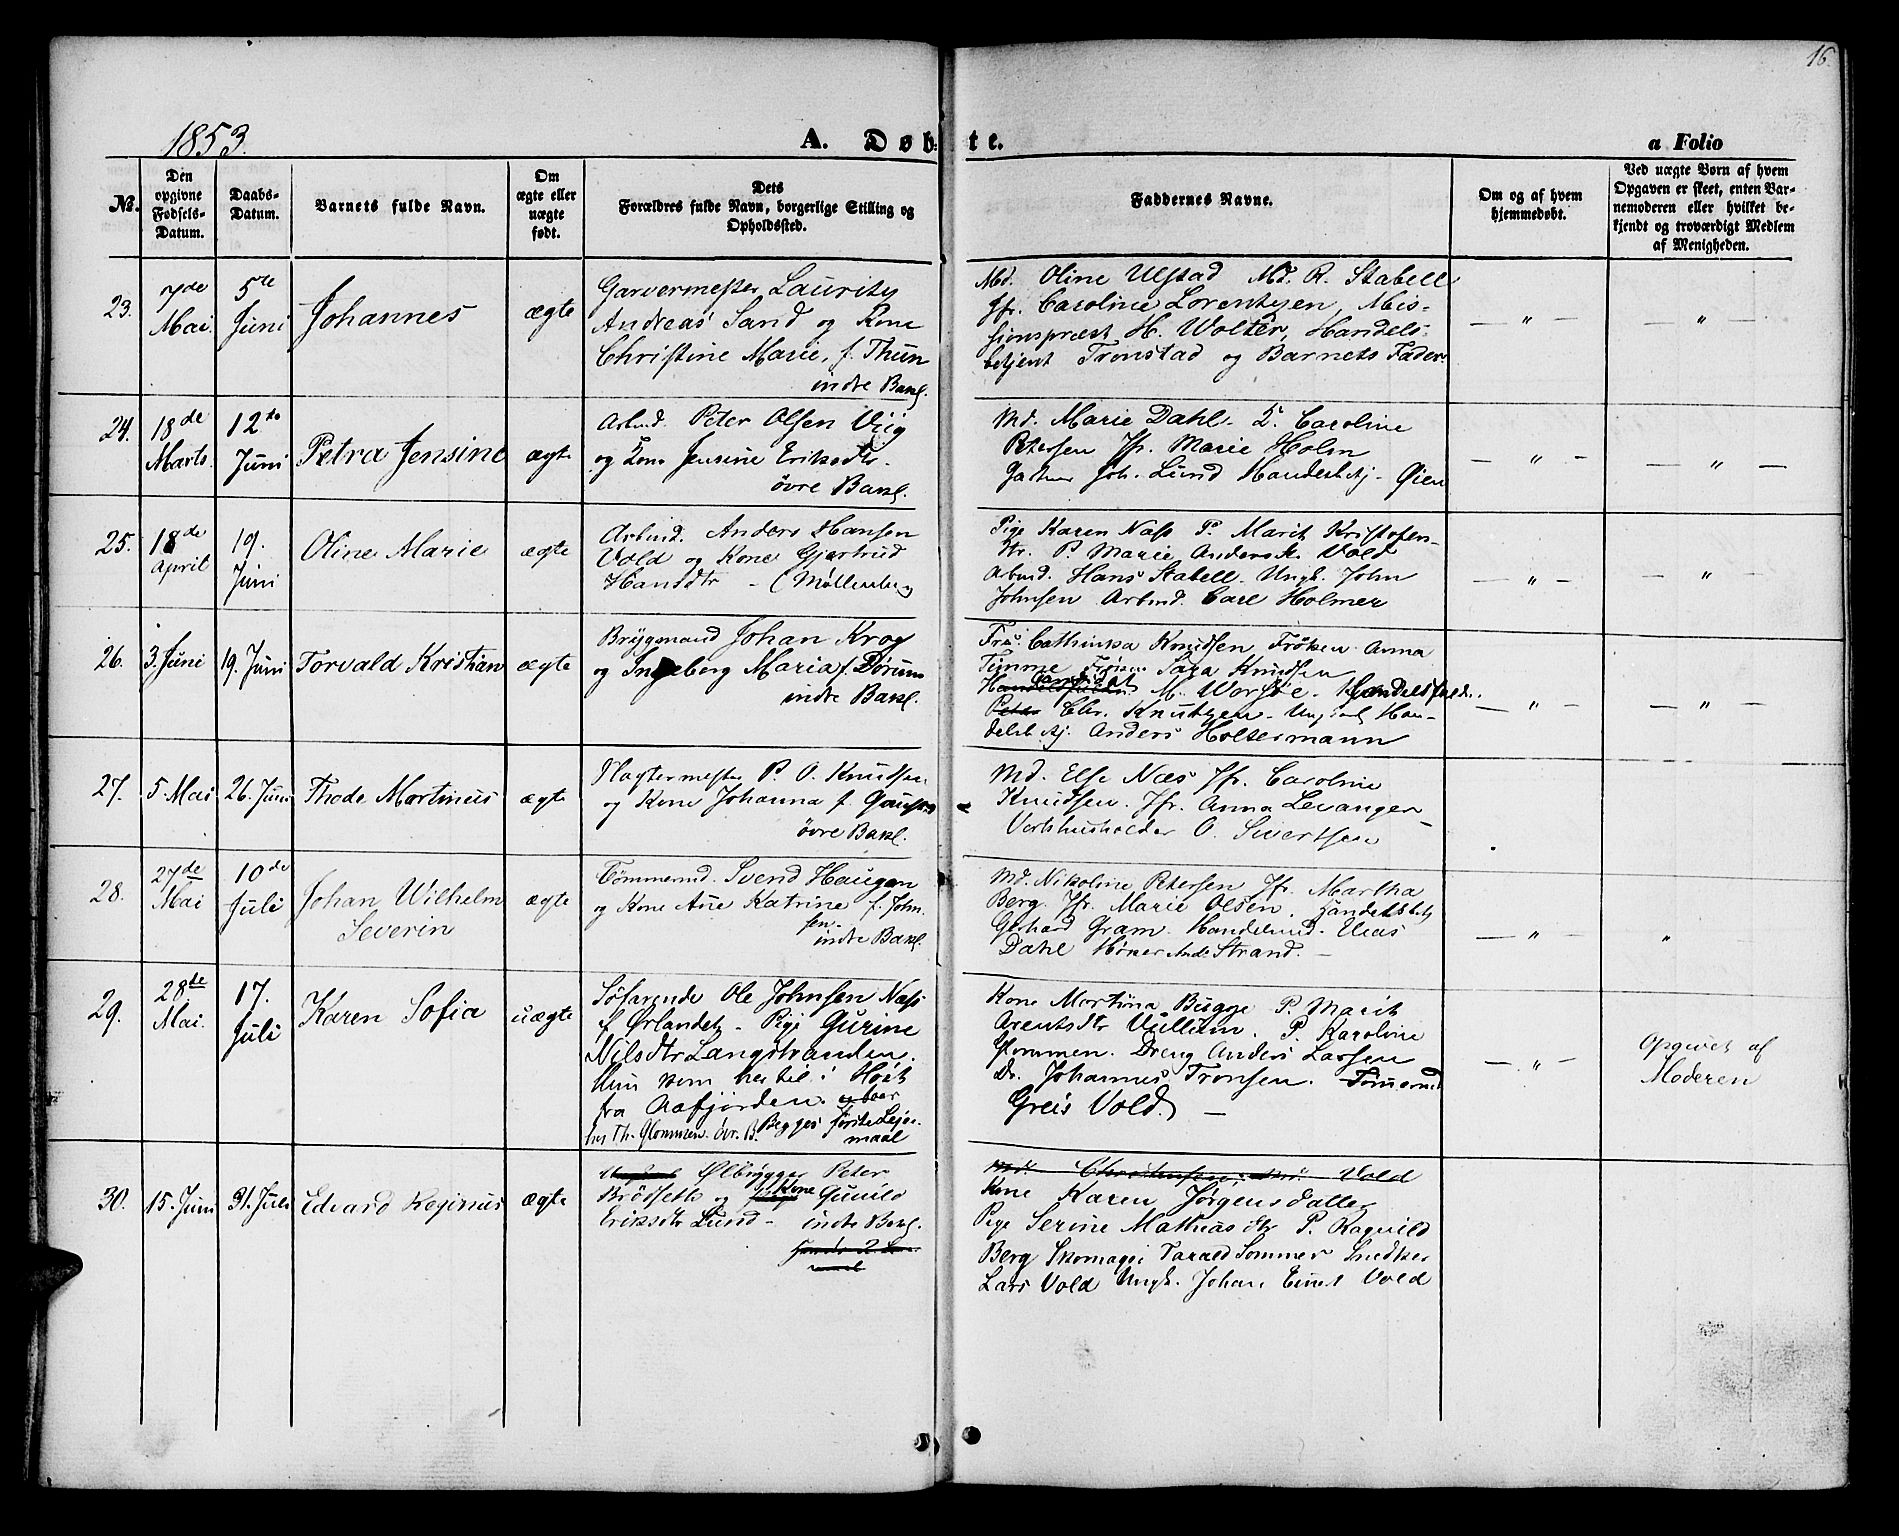 16.
1853.
A. Døbte.
a Folio
No.
Den opgivne Fødsels-Datum.
Daabs-Datum.
Barnets fulde Navn.
Om ægte eller uægte født.
Dets Forældres fulde Navn, borgerlige Stilling og Opholdssted.
Faddernes Navne.
Om og af hvem hjemmedøbt.
Ved uægte Børn af hvem Opgaven er skeet, enten Barnemoderen eller hvilket bekjendt og troværdigt Medlem af Menigheden.
23.
7de Mai
5te Juni
Johannes
ægte
Garvermester Lauritz
Andreas Sand og Kone
Christine Marie, f. Thun
indre Bakl.
Md. Oline Ulstad Md. R. Stabell
Jfr. Caroline Lorentzen, Mis-
sionspræst H. Wolter, Handels-
betjent Tronstad og Barnets Fader
— " —
— " —
24.
18de Marts
12te Juni
Petra Jensine
ægte
Arbmd. Peter Olsen Viig
og Kone Jensine Eriksdtr.
øvre Bakl.
Md. Marie Dahl. Caroline
Petersen Jfr. Marie Holm
Joh. Lund Handelsbetj. Øien
— " —
— " —
25.
18de April
19. Juni
Oline Marie
ægte
Arbmd. Anders Hansen
Vold og Kone Gjertrud
Hansdtr — (Møllenbg)
Pige Karen Næss P. Marit Kristofers-
dtr. P. Marie Andersdtr. Vold
Arbmd. Hans Stabell. Ungk. John
Johnsen Arbmd. Carl Holmer
— " —
— " —
26.
3. Juni
19. Juni
Torvald Kristian
ægte
Brygmand Johan Krog
og Ingeborg Maria f. Dørum
indre Bakl.
Fru Cathinka Knudsen Frøken Anna
Timme Frøken Sara Knudsen
Candidat M. Worsøe. Handelsfuldm.
Chr. Knutzen. Ungkarl Han-
delsbetj. Anders Holtermann
— " —
— " —
27.
5. Mai
26. Juni
Thode Martinus
ægte
Slagtermester P. O. Knudsen
og Kone Johanna f.
øvre Bakl.
Md. Else Næs Jfr. Caroline
Knudsen. Jfr. Anna Levanger
Vertshusholder O. Sivertsen
28.
27de Mai
10de Juli
Johan Wilhelm
Severin
ægte
Tømmermd. Svend Haugan
og Kone Ane Katrine f. John-
sen.
indre Bakl.
Md. Nikoline Petersen Jfr. Martha
Berg. Jfr. Marie Olsen. Handelsbetj
Gerhard Gram. Handelsmd. Elias
Dahl Høker And. Strand. —
— " —
"
29.
28de Mai.
17. Juli
Karen Sofia
uægte
Søfarende Ole Johnsen Næss
f. Ørlandet — Pige Gurine
Nilsdtr Langstranden.
Hun kom her til i Høst
fra Aafjorden. boer
hos Th. Glommen. øvr. B. Begges første Leier-
maal
Kone Martina Bugge P. Marit
Arentsdtr Vullum. P. Karoline
Glommen. Dreng Anders Larsen
Dr. Johannes Tronsen. Tømmermd
Greis Vold. —
— " —
Opgivet af
Moderen
30.
15. Juni
31. Juli
Edvard Reginus
ægte
Ølbrygger Peter
Brøsseth og Kone Gunild
Eriksdtr Lund — indre Bakl.
Vold
Kone Karen Jørgensdaller
Pige Serine Mathiasdtr P. Ragnild
Berg Skomager Tarald Sommer Snedker
Lars Vold Ungk. Johan Ernst Vold